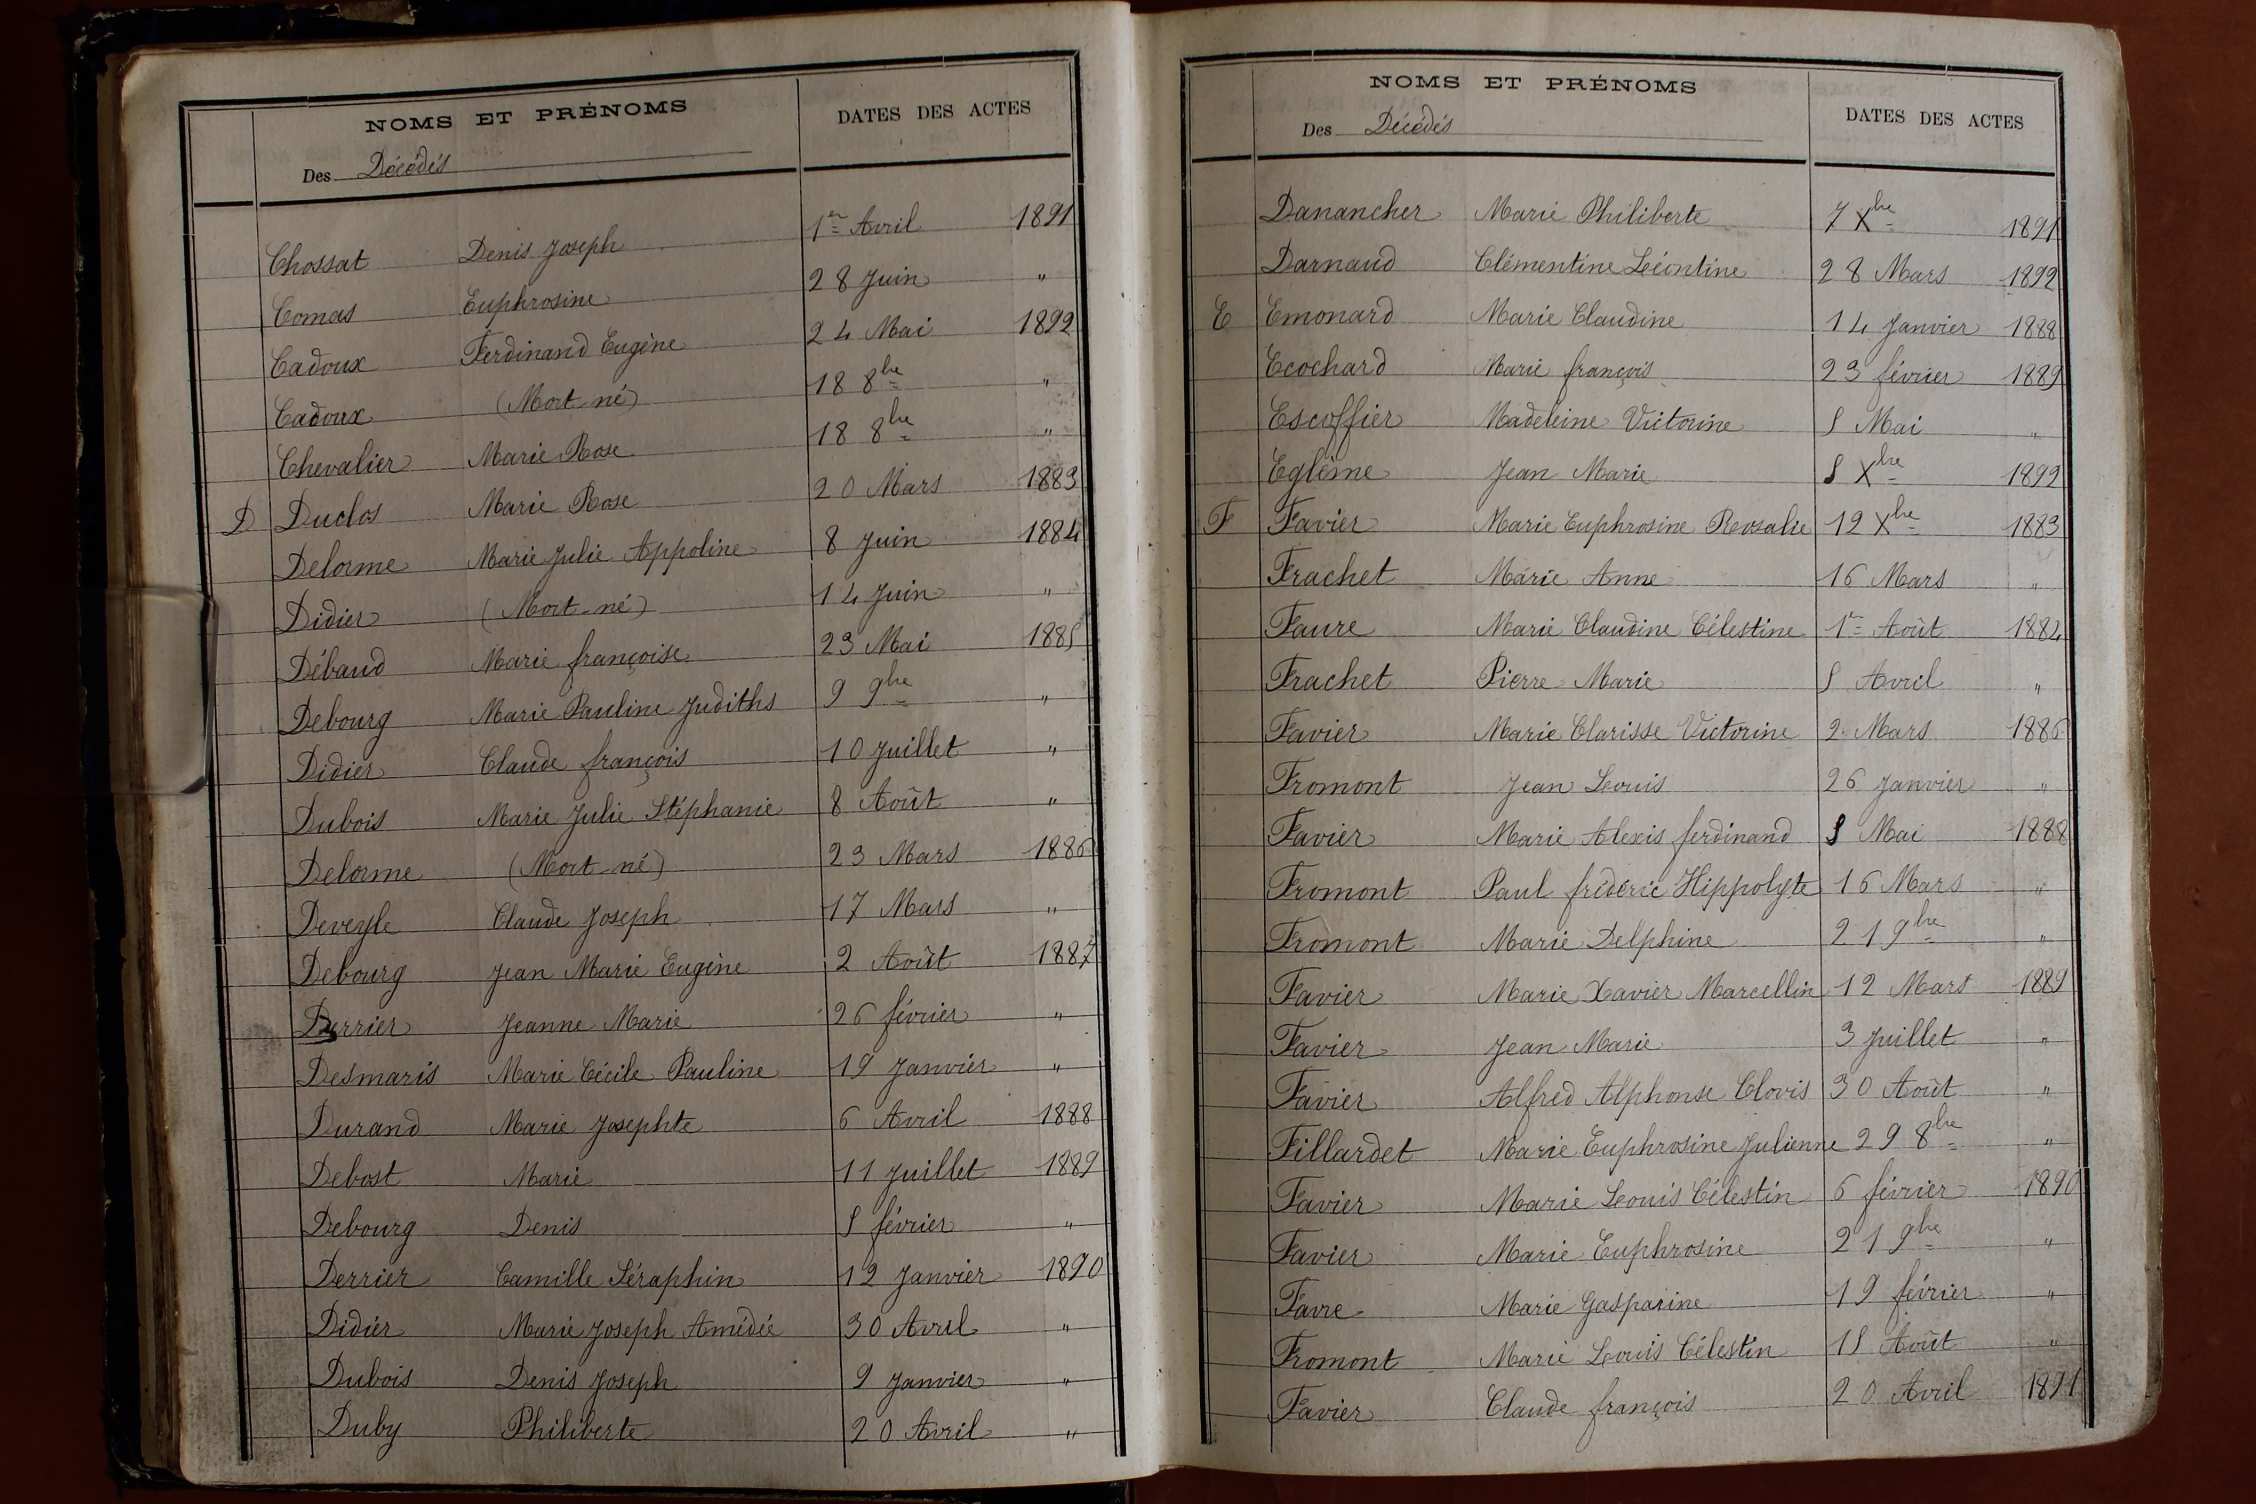 NOMS ET PRÉNOMS DATES DES ACTES
Des Décédés
Chossat Denis Joseph 1er Avril 1891
Comas Euphrosine 28 Juin "
Cadoux Ferdinand Eugène 24 Mai 1892
Cadoux (Mort-né) 18 8bre "
Chevalier Marie Rose 18 8bre "
D Duclos Marie Rose 20 Mars 1883
Delorme Marie Julie Appoline 8 Juin 1884
Didier (Mort-né) 14 Juin "
Débaud Marie françoise 23 Mai 1885
Debourg Marie Pauline Judiths 9 9bre "
Didier Claude françois 10 Juillet "
Dubois Marie Julie Stéphanie 8 Août "
Delorme (Mort-né) 23 Mars 1886
Deveyle Claude Joseph 17 Mars "
Debourg Jean Marie Eugène 2 Août 1887
Derrier Jeanne Marie 26 février "
Desmaris Marie Cécile Pauline 19 Janvier "
Durand Marie Josephte 6 Avril 1888
Debost Marie 11 Juillet 1889
Debourg Denis 5 février "
Derrier Camille Séraphin 12 Janvier 1890
Didier Marie Joseph Amédée 30 Avril "
Dubois Denis Joseph 9 Janvier "
Duby Philiberte 20 Avril "
NOMS ET PRÉNOMS DATES DES ACTES
Des Décédés
Danancher Marie Philiberte 7 Xbre 1891
Darnaud Clémentine Léontine 28 Mars 1892
E Emonard Marie Claudine 14 Janvier 1888
Ecochard Marie françois 23 février 1889
Escoffier Madeleine Victorine 5 Mai "
Eglème Jean Marie 5 Xbre 1892
F Favier Marie Euphrosine Rosalie 12 Xbre 1883
Frachet Marie Anne 16 Mars "
Faure Marie Claudine Célestine 1er Août 1884
Frachet Pierre Marie 5 Avril "
Favier Marie Clarisse Victorine 2 Mars 1886
Fromont Jean Louis 26 Janvier "
Favier Marie Alexis ferdinand 5 Mai 1888
Fromont Paul frédéric Hippolyte 16 Mars "
Fromont Marie Delphine 21 9bre "
Favier Marie Xavier Marcellin 12 Mars 1889
Favier Jean Marie 3 Juillet "
Favier Alfred Alphonse Clovis 30 Août "
Fillardet Marie Euphrosine Julienne 29 8bre "
Favier Marie Louis Célestin 6 février 1890
Favier Marie Euphrosine 21 9bre "
Favre Marie Gasparine 19 février "
Fromont Marie Louis Célestin 15 Août "
Favier Claude françois 20 Avril 1891